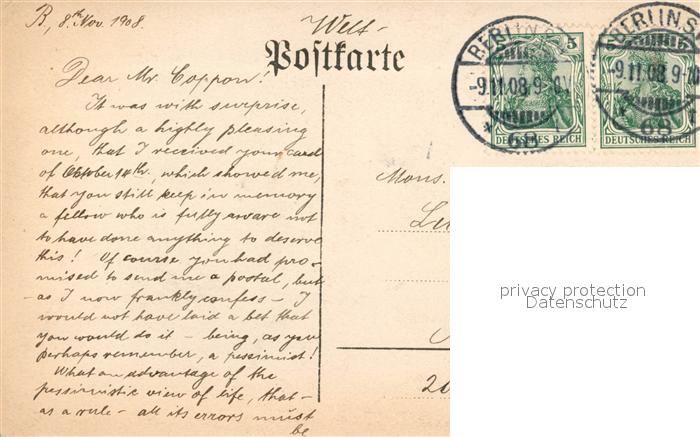 B, 8th Nov. 1908.
Welt-
Postkarte
Dear Mr. Coppon!
It was with surprise,
although a highly pleasing
one, that I received your card
of Oktober 14th. which showed me,
that you still keep in memory
a fellow who is fully aware not
to have done anything to deserve
this! Of course you had pro-
mised to send me a postal, but
- as I now frankly confess - I
would not have laid a bet that
you would do it - being, as you
perhaps remember, a pessimist!
What an advantage of the
pessimistic view of life, that -
as a rule - all its errors must
be
BERLIN S.
-9.11.08.9-
* 68
5
DEUTSCHES REICH
BERLIN S.
-9.11.08.9-
68
DEUTSCHES REICH
Mons.
20
privacy protection
Datenschutz